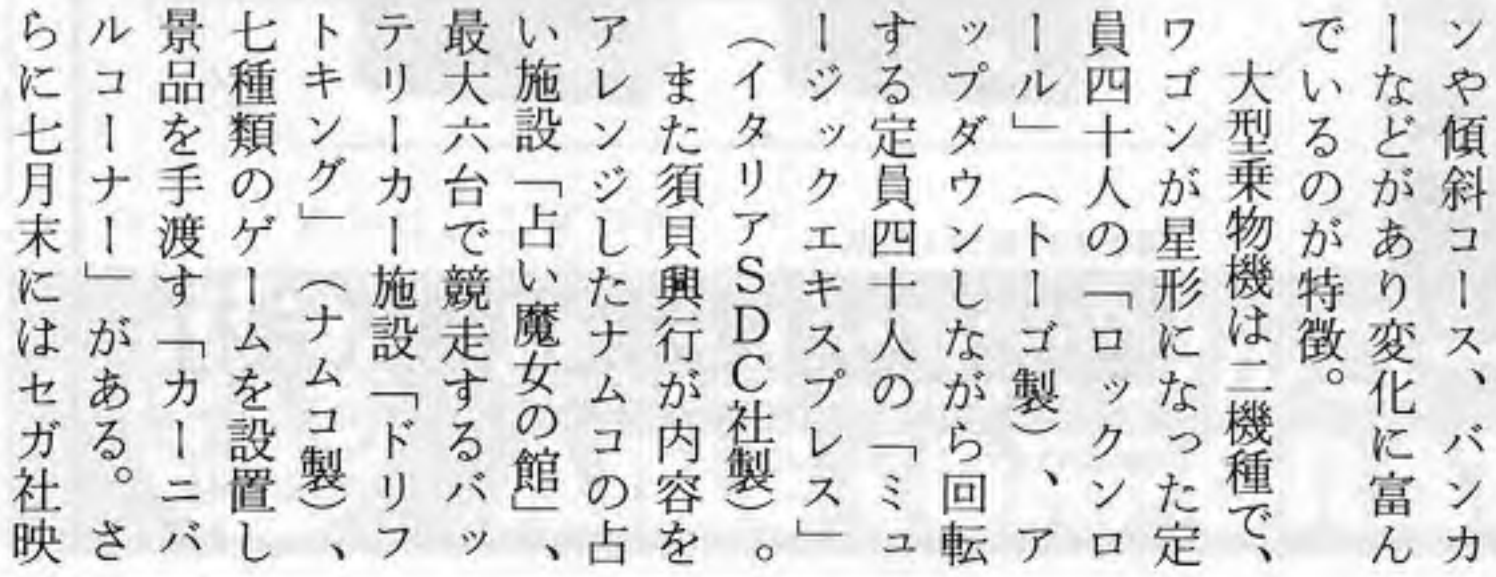 ンや傾斜コース、バンカ
ーなどがあり変化に富ん
でいるのが特徴。
大型乗物機は二機種で、
ワゴンが星形になった定
員四十人の「ロックンロ
ール」（トーゴ製）、ア
ップダウンしながら回転
する定員四十人の「ミュ
ージックエキスプレス」
（イタリアSDC社製）。
また須貝興行が内容を
アレンジしたナムコの占
い施設「占い魔女の館」、
最大六台で競走するバッ
テリーカー施設「ドリフ
トキング」（ナムコ製）、
七種類のゲームを設置し
景品を手渡す「カーニバ
ルコーナー」がある。さ
らに七月末にはセガ社映